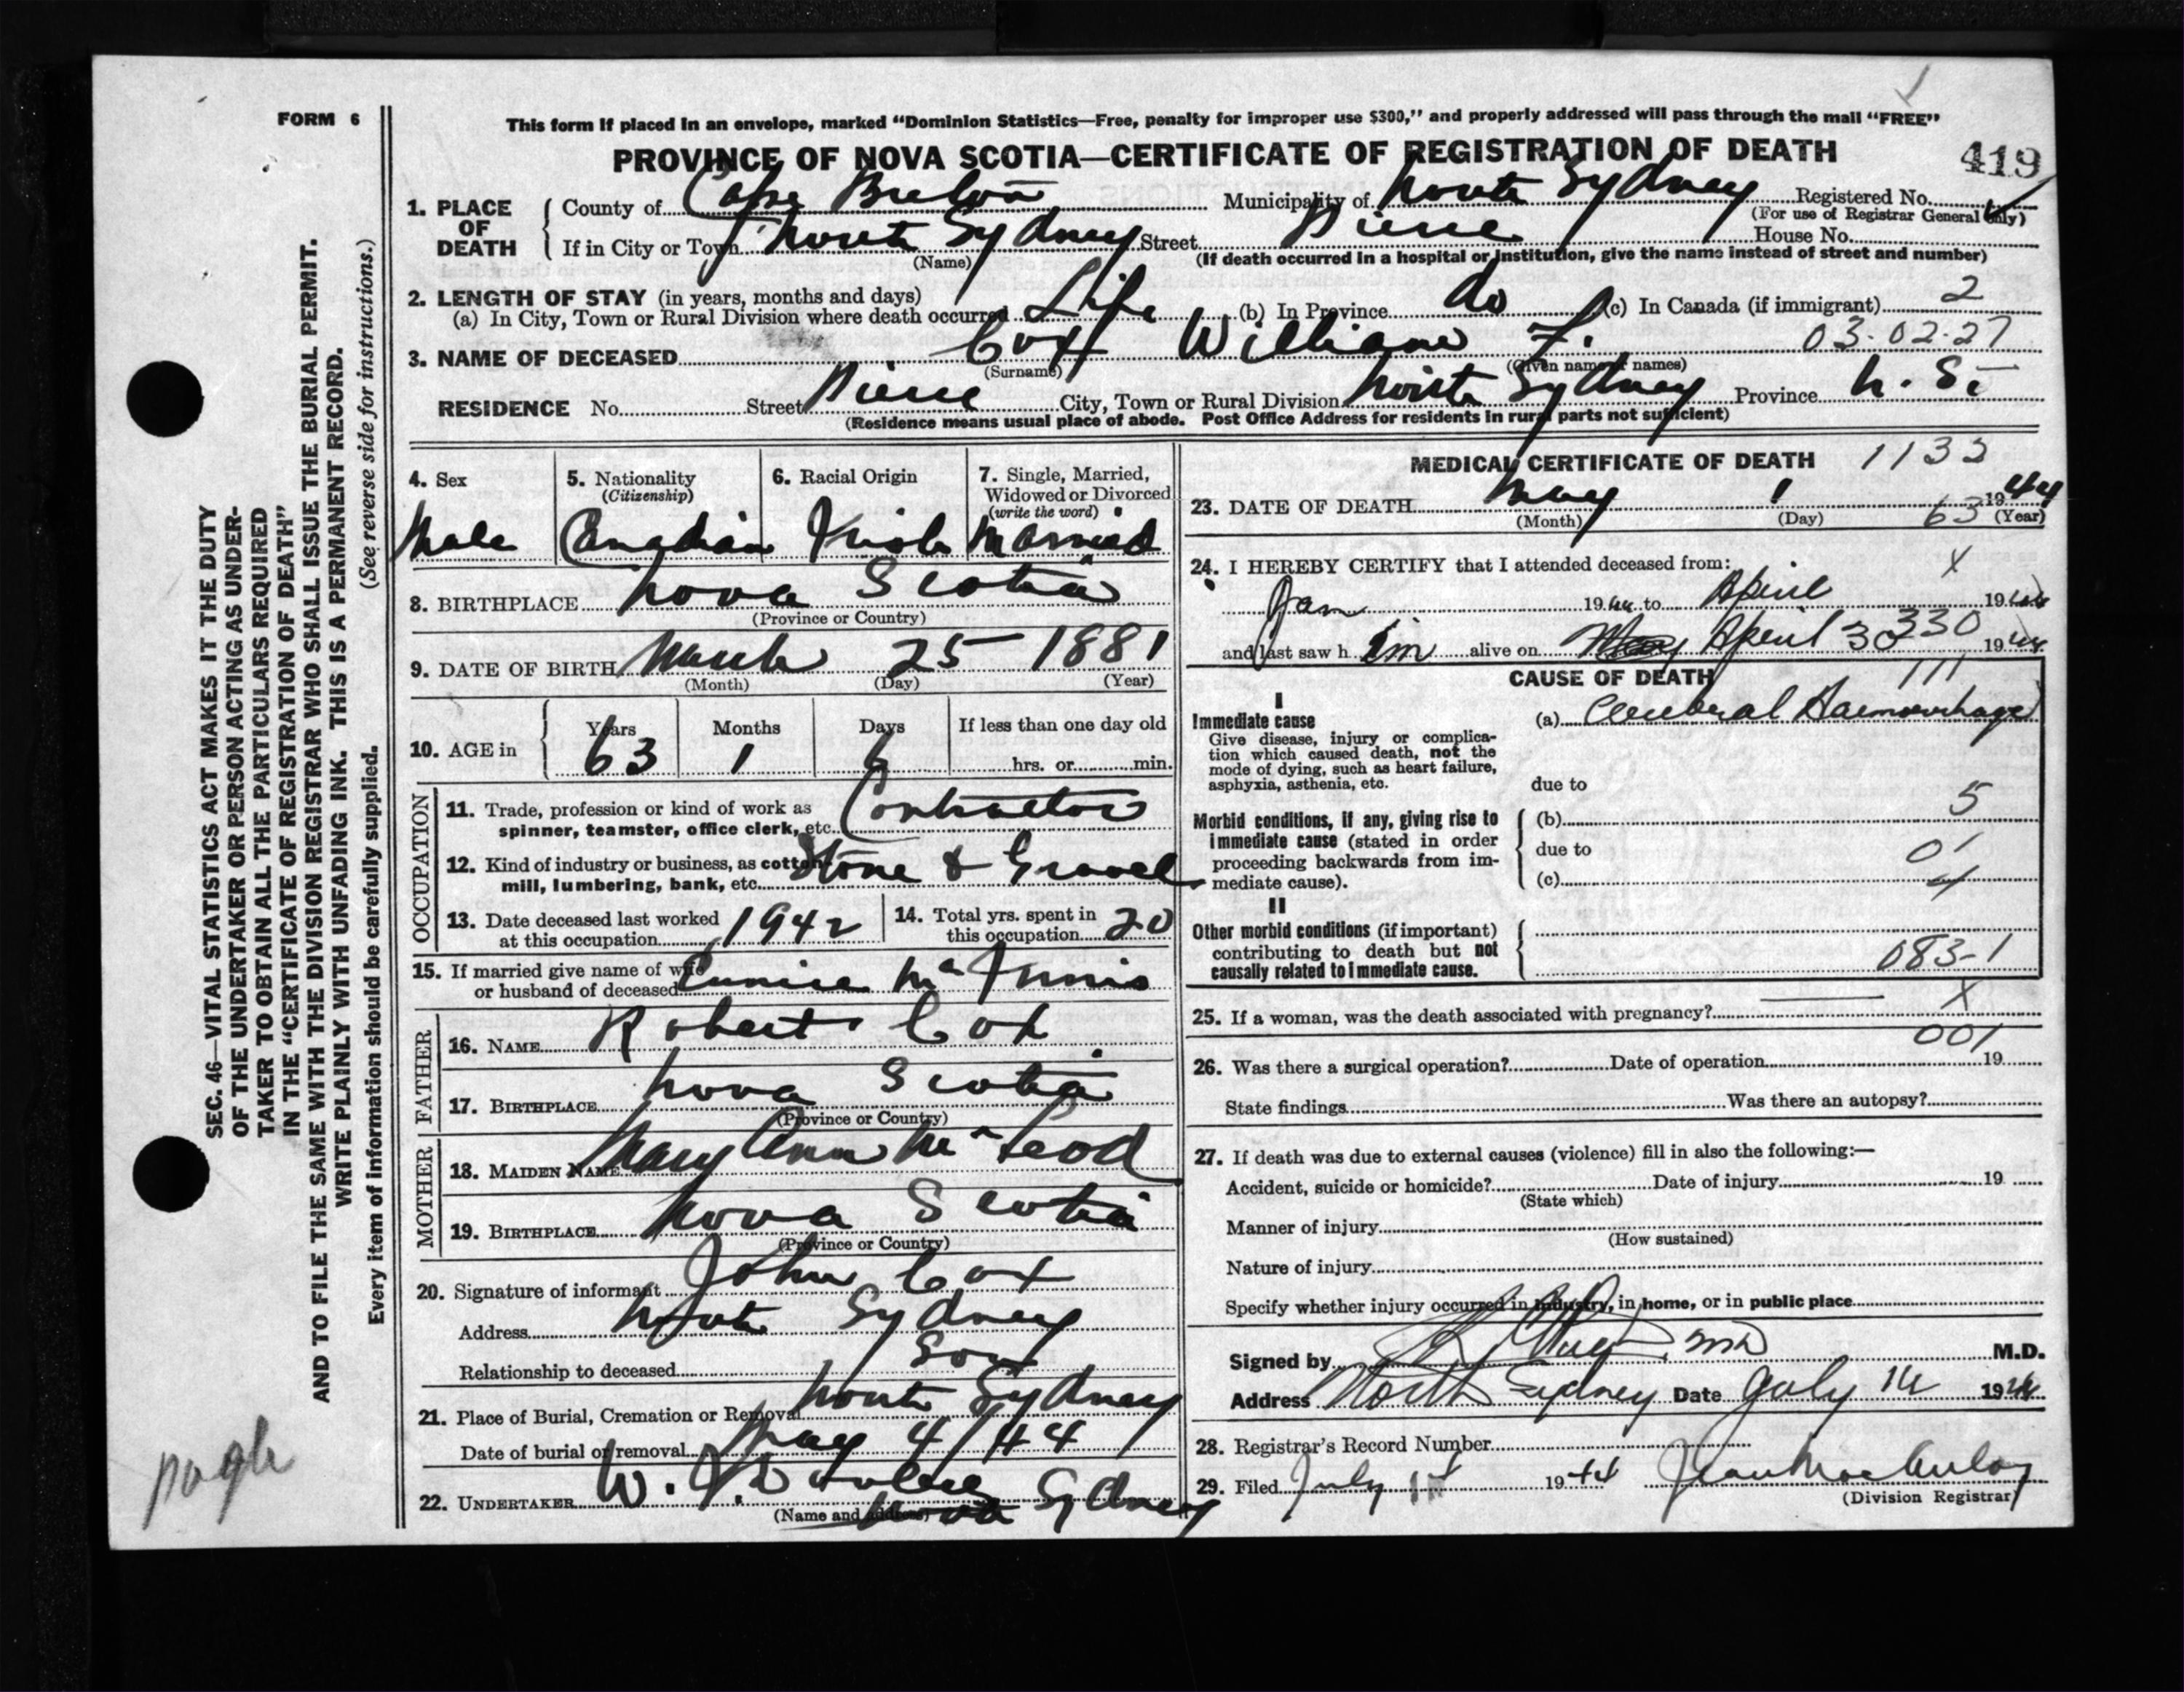 FORM 6
This form if placed in an envelope, marked "Dominion Statistics—Free, penalty for improper use $300," and properly addressed will pass through the mail "FREE"
PROVINCE OF NOVA SCOTIA—CERTIFICATE OF REGISTRATION OF DEATH
419
1. PLACE OF DEATH
County of Cape Breton Municipality of North Sydney Registered No.
(For use of Registrar General only)
If in City or Town North Sydney Street Pierce House No.
(Name) (If death occurred in a hospital or institution, give the name instead of street and number)
2. LENGTH OF STAY (in years, months and days)
(a) In City, Town or Rural Division where death occurred Life (b) In Province do (c) In Canada (if immigrant) 2
3. NAME OF DECEASED Cox William F. 03-02-27
(Surname) (Given name or names)
RESIDENCE No. Street Pierce City, Town or Rural Division North Sydney Province N.S.
(Residence means usual place of abode. Post Office Address for residents in rural parts not sufficient)
4. Sex
Male
5. Nationality
(Citizenship)
Canadian
6. Racial Origin
Irish
7. Single, Married,
Widowed or Divorced
(write the word)
Married
8. BIRTHPLACE Nova Scotia
(Province or Country)
9. DATE OF BIRTH March 25 1881
(Month) (Day) (Year)
10. AGE in
Years Months Days If less than one day old
63 1 6 hrs. or min.
OCCUPATION
11. Trade, profession or kind of work as
spinner, teamster, office clerk, etc. Contractor
12. Kind of industry or business, as cotton
mill, lumbering, bank, etc. Stone & Gravel
13. Date deceased last worked
at this occupation 1942
14. Total yrs. spent in
this occupation 20
15. If married give name of wife
or husband of deceased Eunice McInnis
FATHER
16. NAME Robert Cox
17. BIRTHPLACE Nova Scotia
(Province or Country)
MOTHER
18. MAIDEN NAME Mary Ann McLeod
19. BIRTHPLACE Nova Scotia
(Province or Country)
20. Signature of informant John Cox
Address North Sydney
Relationship to deceased Son
21. Place of Burial, Cremation or Removal North Sydney
Date of burial or removal May 4/44
22. UNDERTAKER W. J. Sydney
(Name and address)
MEDICAL CERTIFICATE OF DEATH 1133
23. DATE OF DEATH May 1 1944
(Month) (Day) 63 (Year)
24. I HEREBY CERTIFY that I attended deceased from: X
Jan 1944 to April 1944
and last saw him alive on April 30 330 1944
CAUSE OF DEATH 111
I
Immediate cause
Give disease, injury or complication
tion which caused death, not the
mode of dying, such as heart failure,
asphyxia, asthenia, etc.
(a) Cerebral Haemorrhage
due to
Morbid conditions, if any, giving rise to
immediate cause (stated in order
proceeding backwards from im-
mediate cause).
(b) 5
due to 01
(c) 4
II
Other morbid conditions (if important)
contributing to death but not
causally related to immediate cause.
083-1
25. If a woman, was the death associated with pregnancy? X
001
26. Was there a surgical operation? Date of operation 19
State findings Was there an autopsy?
27. If death was due to external causes (violence) fill in also the following:—
Accident, suicide or homicide? Date of injury 19
(State which)
Manner of injury
(How sustained)
Nature of injury
Specify whether injury occurred in industry, in home, or in public place
Signed by MD M.D.
Address North Sydney Date July 14 1944
28. Registrar's Record Number
29. Filed July 1944 Jean MacAulay
(Division Registrar)
SEC. 46—VITAL STATISTICS ACT MAKES IT THE DUTY
OF THE UNDERTAKER OR PERSON ACTING AS UNDER-
TAKER TO OBTAIN ALL THE PARTICULARS REQUIRED
IN THE "CERTIFICATE OF REGISTRATION OF DEATH"
AND TO FILE THE SAME WITH THE DIVISION REGISTRAR WHO SHALL ISSUE THE BURIAL PERMIT.
WRITE PLAINLY WITH UNFADING INK. THIS IS A PERMANENT RECORD.
Every item of information should be carefully supplied. (See reverse side for instructions.)